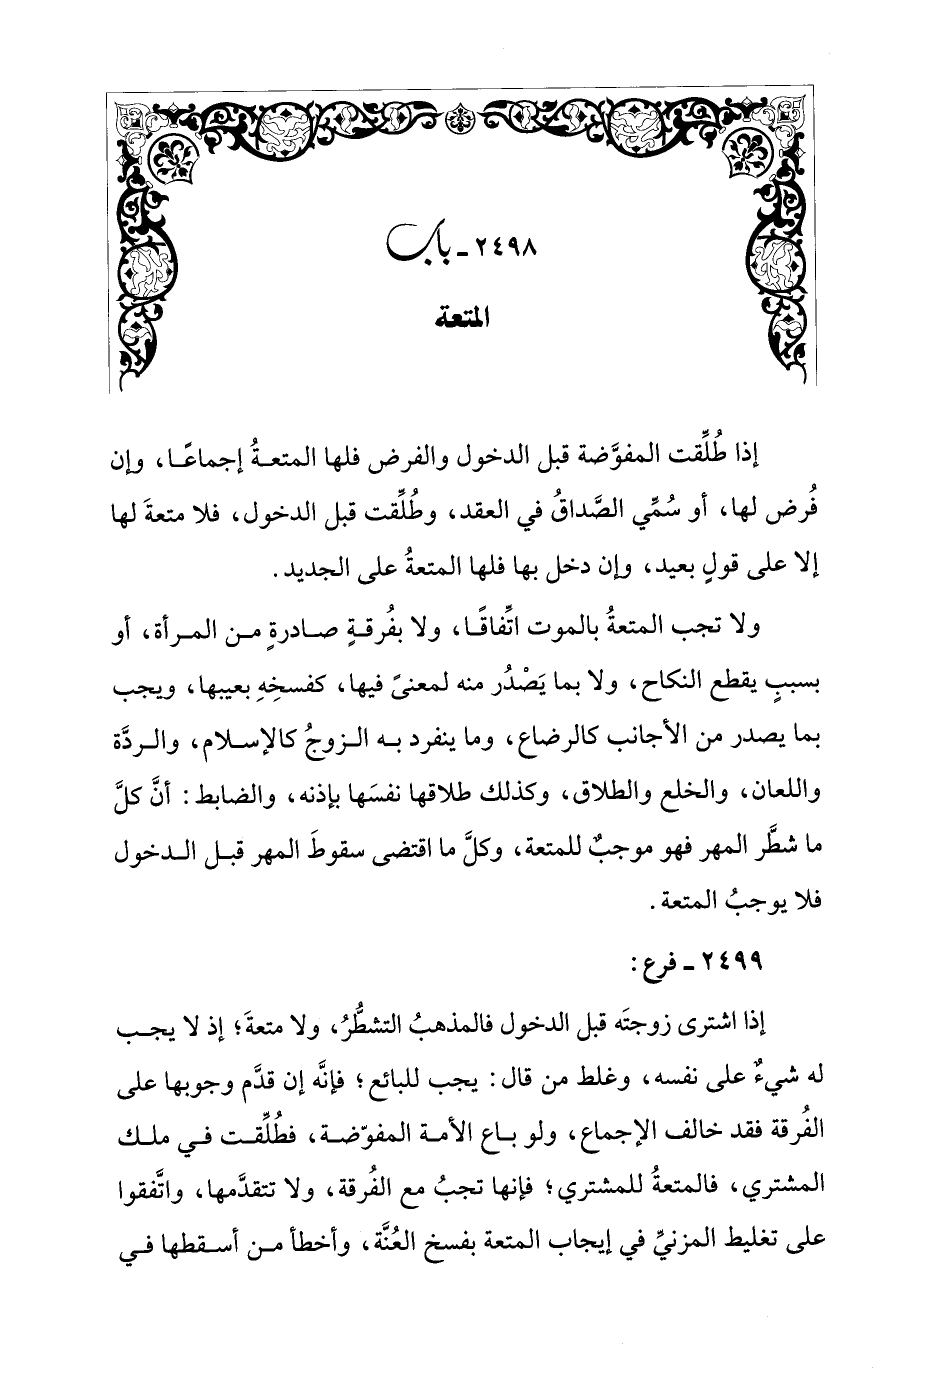 ٢٤٩٨ - باب
المتعة
إذا طُلِّقت المفوَّضة قبل الدخول والفرض فلها المتعـةُ إجماعًـا، وإن
فُرض لها، أو سُمِّي الصَّداقُ في العقد، وطُلِّقت قبل الدخول، فلا متعةَ لها
إلا على قولٍ بعيد، وإن دخل بها فلها المتعةُ على الجديد.
ولا تجب المتعةُ بالموت اتِّفاقًـا، ولا بفُرقـةٍ صـادرةٍ مـن المـرأة، أو
بسببٍ يقطع النكاح، ولا بما يَصْدُر منه لمعنىً فيها، كفسخِهِ بعيبها، ويجب
بما يصدر من الأجانب كالرضاع، وما ينفرد بـه الـزوجُ كالإسـلام، والـردَّة
واللعان، والخلع والطلاق، وكذلك طلاقها نفسَها بإذنه، والضابط: أنَّ كلَّ
ما شطَّر المهر فهو موجبٌ للمتعة، وكلَّ ما اقتضى سقوطَ المهر قبـل الـدخول
فلا يوجبُ المتعة.
٢٤٩٩ - فرع:
إذا اشترى زوجتَه قبل الدخول فالمذهبُ التشطُّرُ، ولا متعةَ؛ إذ لا يجـب
له شيءٌ على نفسه، وغلط من قال: يجب للبائع؛ فإنَّه إن قدَّم وجوبها على
الفُرقة فقد خالف الإجماع، ولو بـاع الأمـة المفوّضـة، فطُلِّقـت فـي ملـك
المشتري، فالمتعةُ للمشتري؛ فإنها تجبُ مع الفُرقة، ولا تتقدَّمها، واتَّفقوا
على تغليط المزنيِّ في إيجاب المتعة بفسخ العُنَّة، وأخطأ مـن أسـقطها فـي